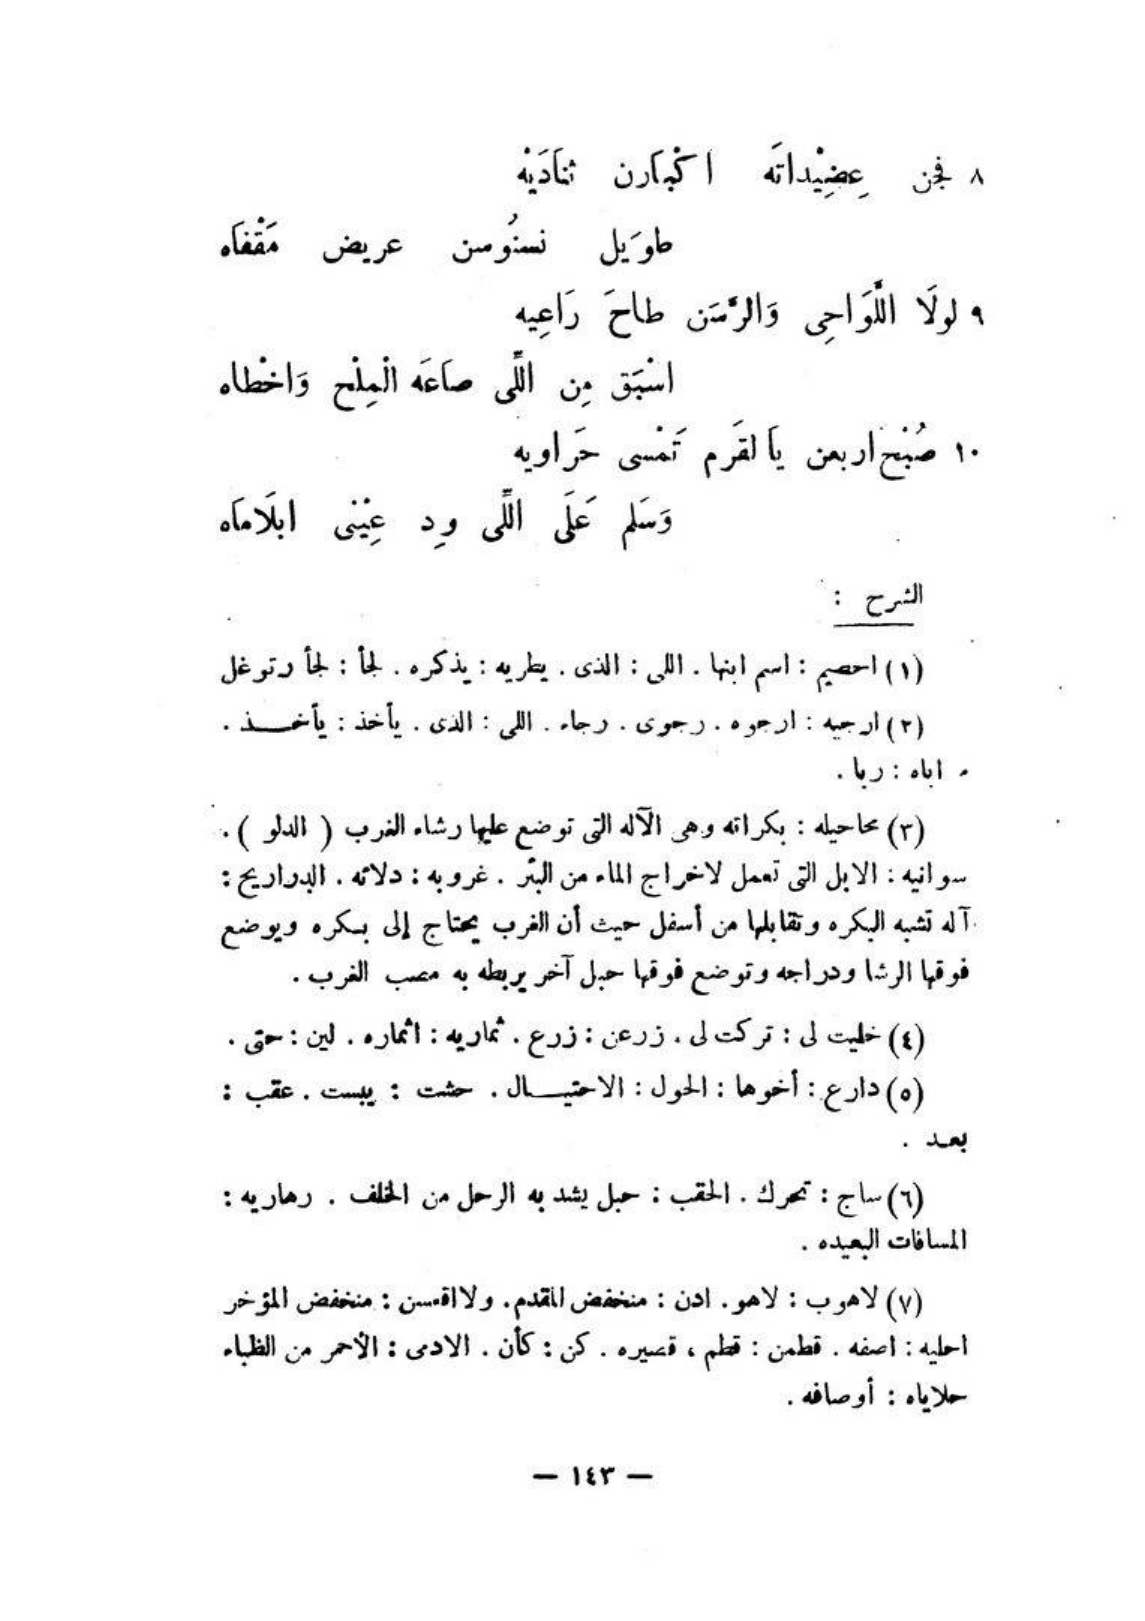 ٨ فجن عِضِيْداتَه اكْبَارن ثنَادَيْه
طاوَيل نسنُوسن عريض مَقْفَاه
٩ لولَا اللَّوَاحِى وَالرَّسَن طاحَ رَاعِيه
اسْبَق مِن اللَّى صَاعَه الْمِلْح وَاخْطاه
١٠ صُبْح اربعن يَا لقَرم تَمْسى حَراويه
وَسَلم عَلَى اللَّى وِد عِيْنى ابلَامَاه
الشرح :
(١) احصيم : اسم ابنها . اللى : الذى . يطريه : يذكره . لجأ : لجأ وتوغل
(٢) ارجيه : ارجوه . رجوى . رجاء . اللى : الذى . يأخذ : يأخـــذ .
اباه : ربا .
(٣) محاحيله : بكراته وهى الآله التى توضع عليها رشاء الغرب ( الدلو ) .
سوانيه : الابل التى تعمل لاخراج الماء من البئر . غروبه : دلائه . الدراريج :
آله تشبه البكره وتقابلها من أسفل حيث أن الغرب يحتاج إلى بكره ويوضع
فوقها الرشا ودراجه وتوضع فوقها حبل آخر يربطه به مصب الغرب .
(٤) خليت لى : تركت لى . زرعن : زرع . ثماريه : اثماره . لين : حتى .
(٥) دارع : أخوها : الحول : الاحتيـــال . حشت : يبست . عقب :
بعـد .
(٦) ساج : تحرك . الحقب : حبل يشد به الرحل من الخلف . رهاريه :
المسافات البعيده .
(٧) لاهوب : لاهو . ادن : منخفض المقدم . ولااقسن : منخفض المؤخر
احليه : اصفه . قطمن : قطم ، قصيره . كن : كأن . الادمى : الأحمر من الظباء
حلاياه : أوصافه .
— ١٤٣ —